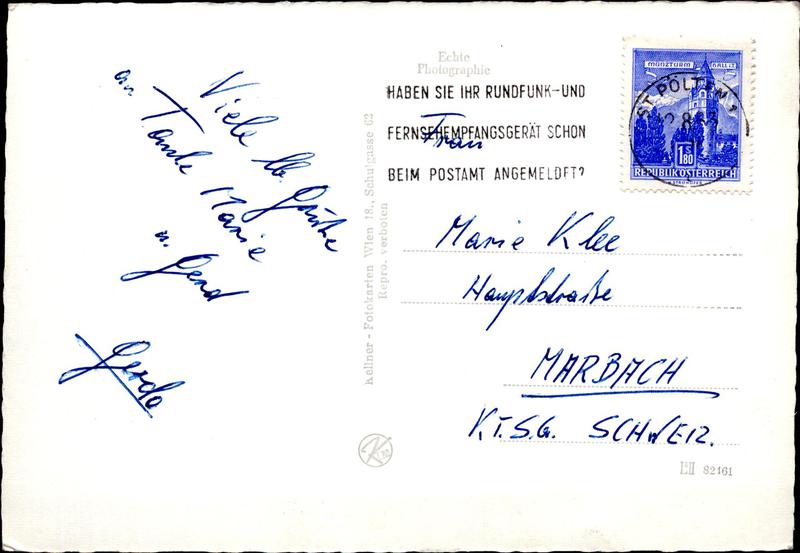 Viele lb. Grüße
an Tante Marie
u. Gerd
Gerda
Echte
Photographie
HABEN SIE IHR RUNDFUNK-UND
FERNSEHEMPFANGSGERÄT SCHON
BEIM POSTAMT ANGEMELDET?
MÜNZTURM HALL I.T.
ST. PÖLTEN 1
1 S 80
REPUBLIK ÖSTERREICH
Frau
Marie Klee
Hauptstraße
MARBACH
KT. S.G. SCHWEIZ.
Kellner - Fotokarten Wien 18., Schulgasse 62
Repro. verboten
82161